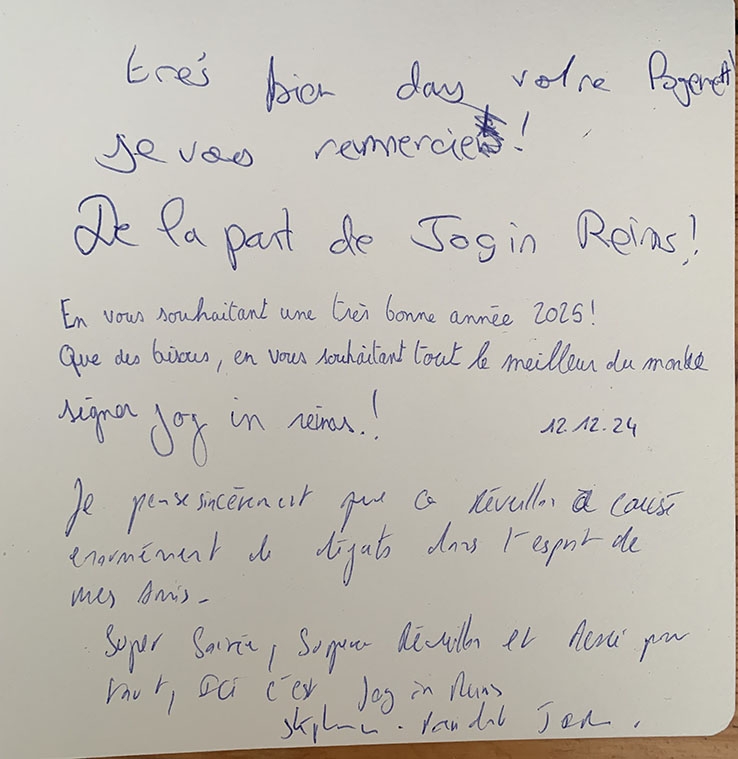 très bien dans votre
je vous remmercie !
De la part de Jog in Reims !
En vous souhaitant une très bonne année 2025 !
Que des bisous, en vous souhaitant tout le meilleur du monde
signer jog in reims. !
12.12.24
Je pense sincèrement que ce Réveillon a causé
enormément de dégats dans l'esprit de
mes amis.
Super Soirée, Super Réveillon et Merci pour
tout, Ici c'est Jog in Reims